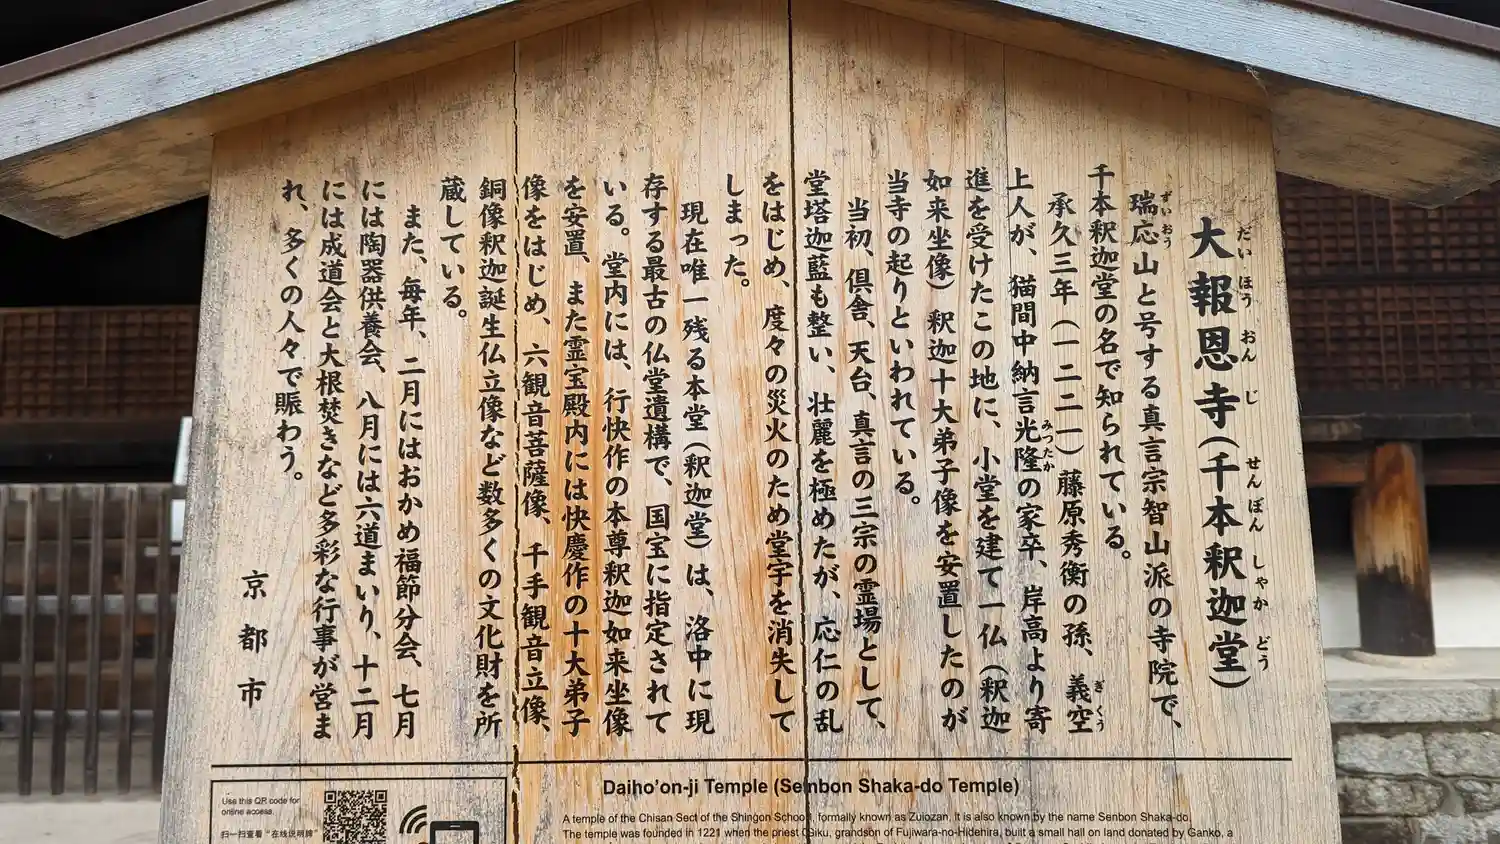 大報恩寺（千本釈迦堂）
だいほうおんじ せんぼんしゃかどう
瑞応山と号する真言宗智山派の寺院で、
ずいおう
千本釈迦堂の名で知られている。
承久三年（一二二一）藤原秀衡の孫、義空
ぎくう
上人が、猫間中納言光隆の家卒、岸高より寄
みつたか
進を受けたこの地に、小堂を建て一仏（釈迦
如来坐像）釈迦十大弟子像を安置したのが
当寺の起りといわれている。
当初、倶舎、天台、真言の三宗の霊場として、
堂塔迦藍も整い、壮麗を極めたが、応仁の乱
をはじめ、度々の災火のため堂宇を消失して
しまった。
現在唯一残る本堂（釈迦堂）は、洛中に現
存する最古の仏堂遺構で、国宝に指定されて
いる。堂内には、行快作の本尊釈迦如来坐像
を安置、また霊宝殿内には快慶作の十大弟子
像をはじめ、六観音菩薩像、千手観音立像、
銅像釈迦誕生仏立像など数多くの文化財を所
蔵している。
また、毎年、二月にはおかめ福節分会、七月
には陶器供養会、八月には六道まいり、十二月
には成道会と大根焚きなど多彩な行事が営ま
れ、多くの人々で賑わう。
京都市
Daiho'on-ji Temple (Senbon Shaka-do Temple)
A temple of the Chisan Sect of the Shingon School, formally known as Zuiozan, it is also known by the name Senbon Shaka-do.
The temple was founded in 1221 when the priest Giku, grandson of Fujiwara-no-Hidehira, built a small hall on land donated by Ganko, a
Use this QR code for
online access.
扫一扫查看“在线说明牌”